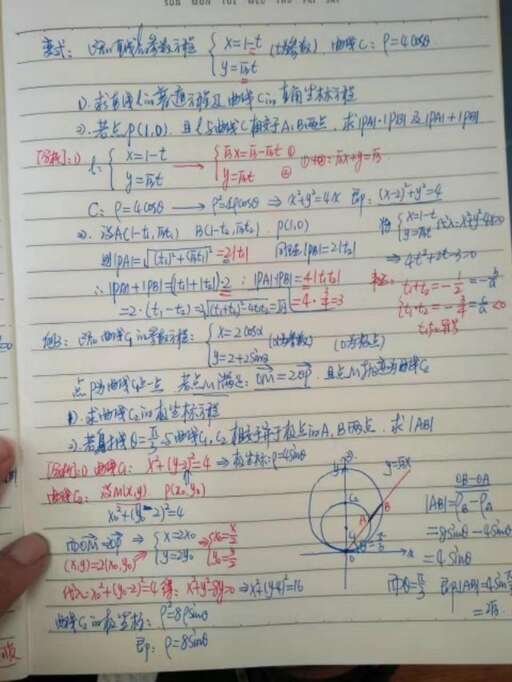 SUN MON TUE WED THU FRI SAT
变式: 已知直线l的参数方程 { x=1-t y=√3t (t为参数), 曲线C: ρ=4cosθ
1). 求直线l的普通方程及曲线C的直角坐标方程
2). 若点P(1,0), 且l与曲线C相交于A、B两点, 求|PA|·|PB|及|PA|+|PB|
[分析]: 1) l: { x=1-t y=√3t → { √3x=√3-√3t ① y=√3t ② ①+②: √3x+y=√3
C: ρ=4cosθ → ρ²=4ρcosθ ⇒ x²+y²=4x 即: (x-2)²+y²=4
2). 设A(1-t₁, √3t₁) B(1-t₂, √3t₂) P(1,0) 将 { x=1-t y=√3t 代入x²+y²-4x=0
则|PA|=√(t₁)²+(√3t₁)² =2|t₁| 同理|PB|=2|t₂| ⇒ 4t²+2t-3=0
∴ |PA|+|PB|=(|t₁|+|t₂|)·2 ; |PA|·|PB|=4|t₁t₂| t₁+t₂=-1/2
=2·(t₁-t₂)=2√(t₁+t₂)²-4t₁t₂=√13 =4·3/4=3 t₁·t₂=-3/4 <0
t₁t₂异号
例3: 已知曲线C₁的参数方程: { x=2cosα y=2+2sinα (α为参数)
点P为曲线C₁上一点 若点M满足: OM=2OP, 且点M轨迹为曲线C₂
1). 求曲线C₂的极坐标方程
2). 若射线θ=π/3与曲线C₁, C₂相交异于极点的A、B两点. 求|AB|
[分析]: 1) 曲线C₁: x²+(y-2)²=4 ⇒ 极坐标: ρ=4sinθ
曲线C₂: 设M(x,y) P(x₀,y₀)
x₀²+(y₀-2)²=4
由OM=2OP ⇒ { x=2x₀ y=2y₀ ⇒ { x₀=x/2 y₀=y/2
(x,y)=2(x₀,y₀)
代入x₀²+(y₀-2)²=4 得: x²+y²-8y=0 ⇒ x²+(y-4)²=16
曲线C₂的极坐标: ρ²=8ρsinθ
即: ρ=8sinθ
y=√3x
OB-OA
|AB|=ρB-ρA
=8sinθ-4sinθ
=4sinθ
由θ=π/3 即|AB|=4sinπ/3
=2√3.